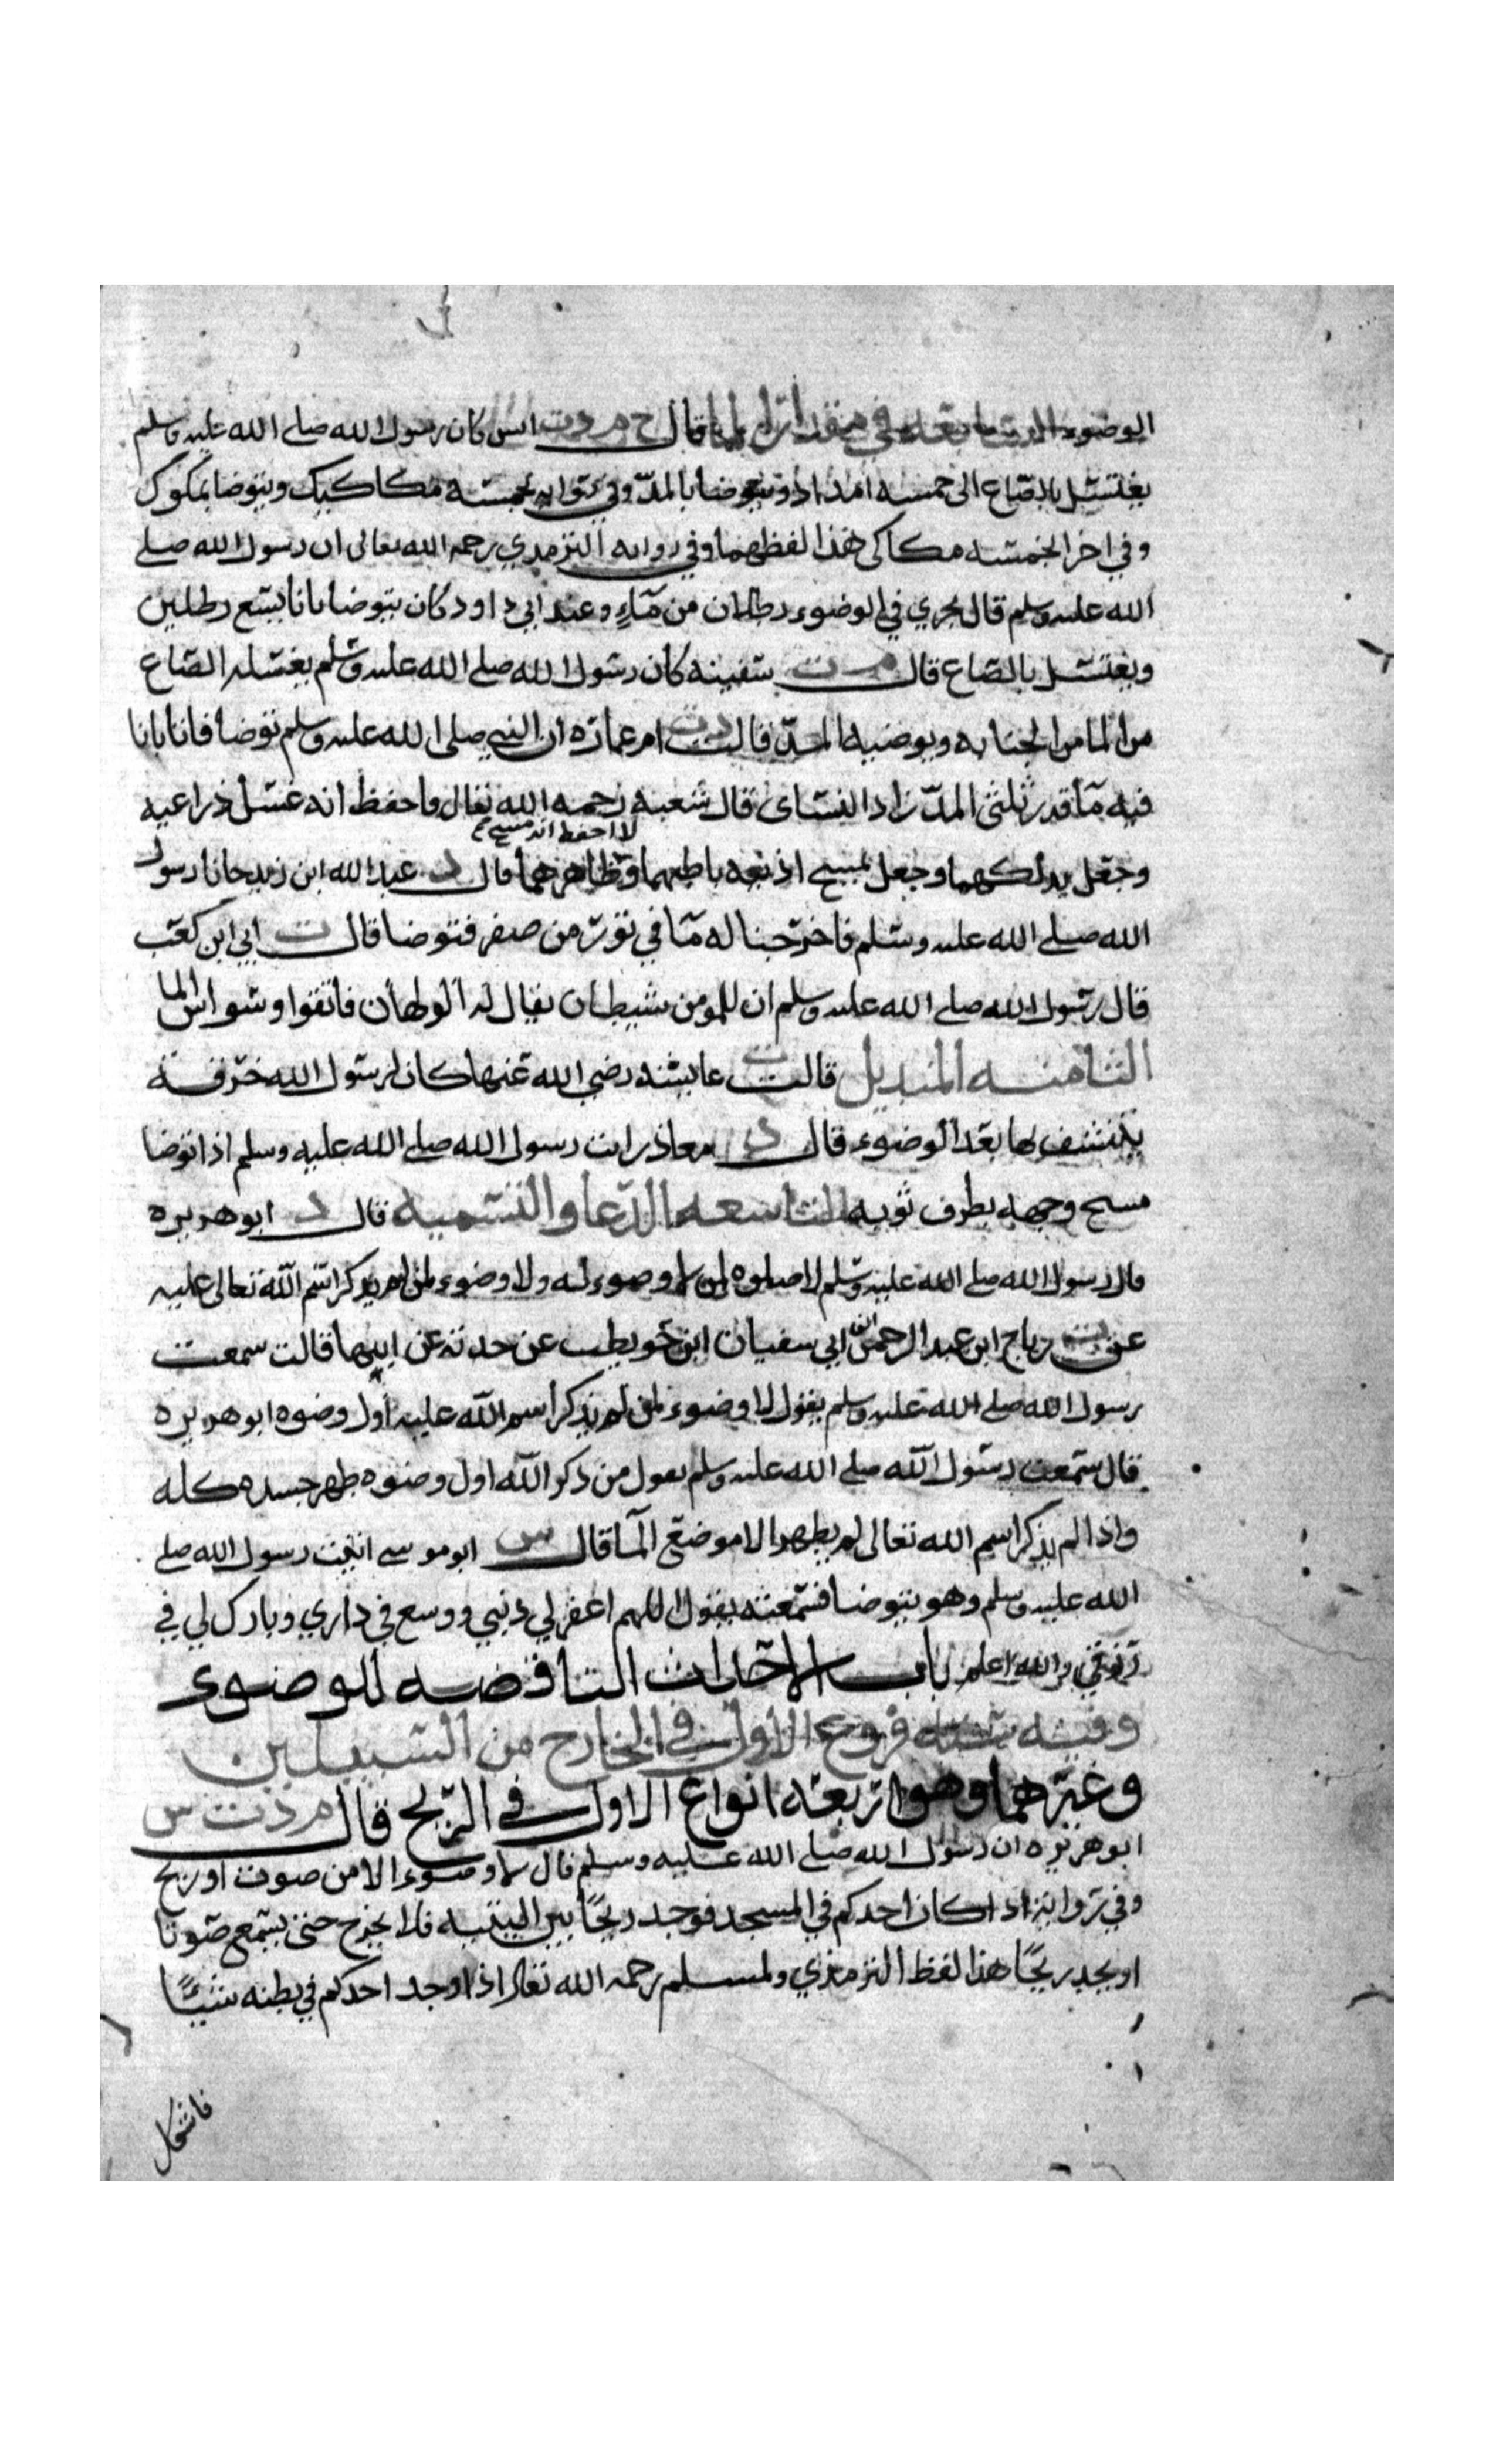 الوضوء السابعه في مقدار الما قال خ م د ت انس كان رسول الله صلي الله عليه وسلم
يغتسل بالصاع الى خمسه امداد ويتوضا بالمدّ وفي روايه بخمسه مكاكيك ويتوضا بمكوك
وفي اخرا بخمسه مكاكى هذا لفظهما وفي روايه الترمدي رحمه الله تعالى ان رسول الله صلي
الله عليه وسلم قال يجري في الوضوء رطلان من مآءٍ وعند ابي داود كان يتوضا بانا يسع رطلين
ويغتسل بالصاع قال م ت سفينه كان رسول الله صلي الله عليه وسلم يغسله الصاع
من الما من الجنابه ويوضيه المدّ قالت د ت ام عماره ان النبي صلى الله عليه وسلم توضا فاتا بانا
فيه مآ قدر ثلثي المدّ زاد النساى قال شعبه رحمه الله تعال فاحفظ انه غسل ذراعيه
لا احفظ انه مسح
وجعل يدلكهما وجعل يمسح اذنيه باطنهما وظاهرهما قال د عبد الله ابن زيد جانا رسول
الله صلي الله عليه وسلم فاخرجنا له مآ في تور من صفر فتوضا قال ت ابي ابن كعب
قال رسول الله صلي الله عليه وسلم ان للمومن شيطان يقال له الولهان فاتقوا وسواس الما
الثامنه المنديل قالت ت عايشه رضي الله عنها كان لرسول الله خرقه
يتنشف بها بعد الوضوء قال د معاذ رايت رسول الله صلي الله عليه وسلم اذا توضا
مسح وجهه بطرف ثوبه التاسعه الدّعا والتسميه قال د ابو هريره
قال رسول الله صلي الله عليه وسلم لا صلوه لمن لا وضوء له ولا وضوء لمن لم يذكر اسم الله تعالى عليه
عن ت رباح ابن عبد الرحمن ابن ابي سفيان ابن حويطب عن جدته عن ابيها قالت سمعت
رسول الله صلي الله عليه وسلم يقول لا وضوء لمن لم يذكر اسم الله عليه اول وضوه ابو هريره
قال سمعت رسول الله صلي الله عليه وسلم يقول من ذكر الله اول وضوه طهر جسده كله
واذا لم يذكر اسم الله تعالى لم يطهر الا موضع المآ قال س ابو موسي اتيت رسول الله صلي
الله عليه وسلم وهو يتوضا فسمعته يقول اللهم اغفر لي ذنبي ووسع في داري وبارك لي في
رزقي والله اعلم باب الاحداث الناقضه للوضوء
وفيه سته فروع الاول في الخارج من السبيلين
وغيرهما وهو اربعه انواع الاول في الريح قال م د ت س
ابو هريره ان رسول الله صلي الله عليه وسلم قال لا وضوء الا من صوت او ريح
وفي روايه اذا كان احدكم في المسجد فوجد ريحًا بين اليتيه فلا يخرج حتى يسمع صوتا
او يجد ريحًا هذا لفظ الترمذي ولمسلم رحمه الله تعال اذا وجد احدكم في بطنه شيئًا
فاشكل